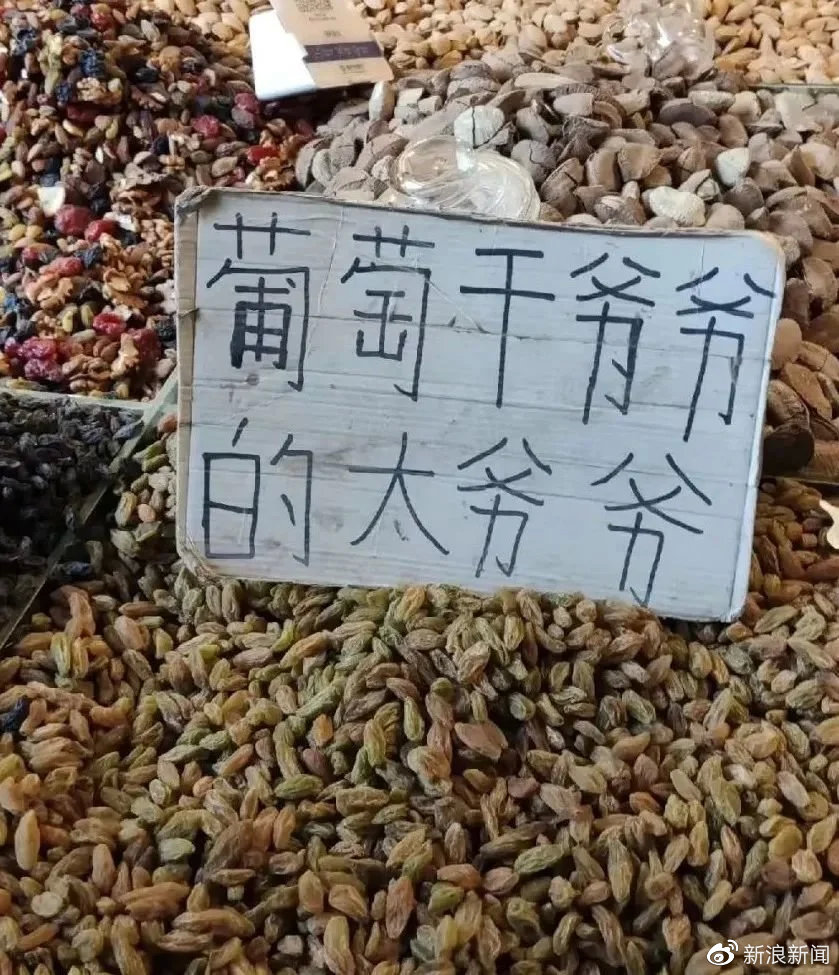 葡萄干爷爷
的大爷爷
新浪新闻